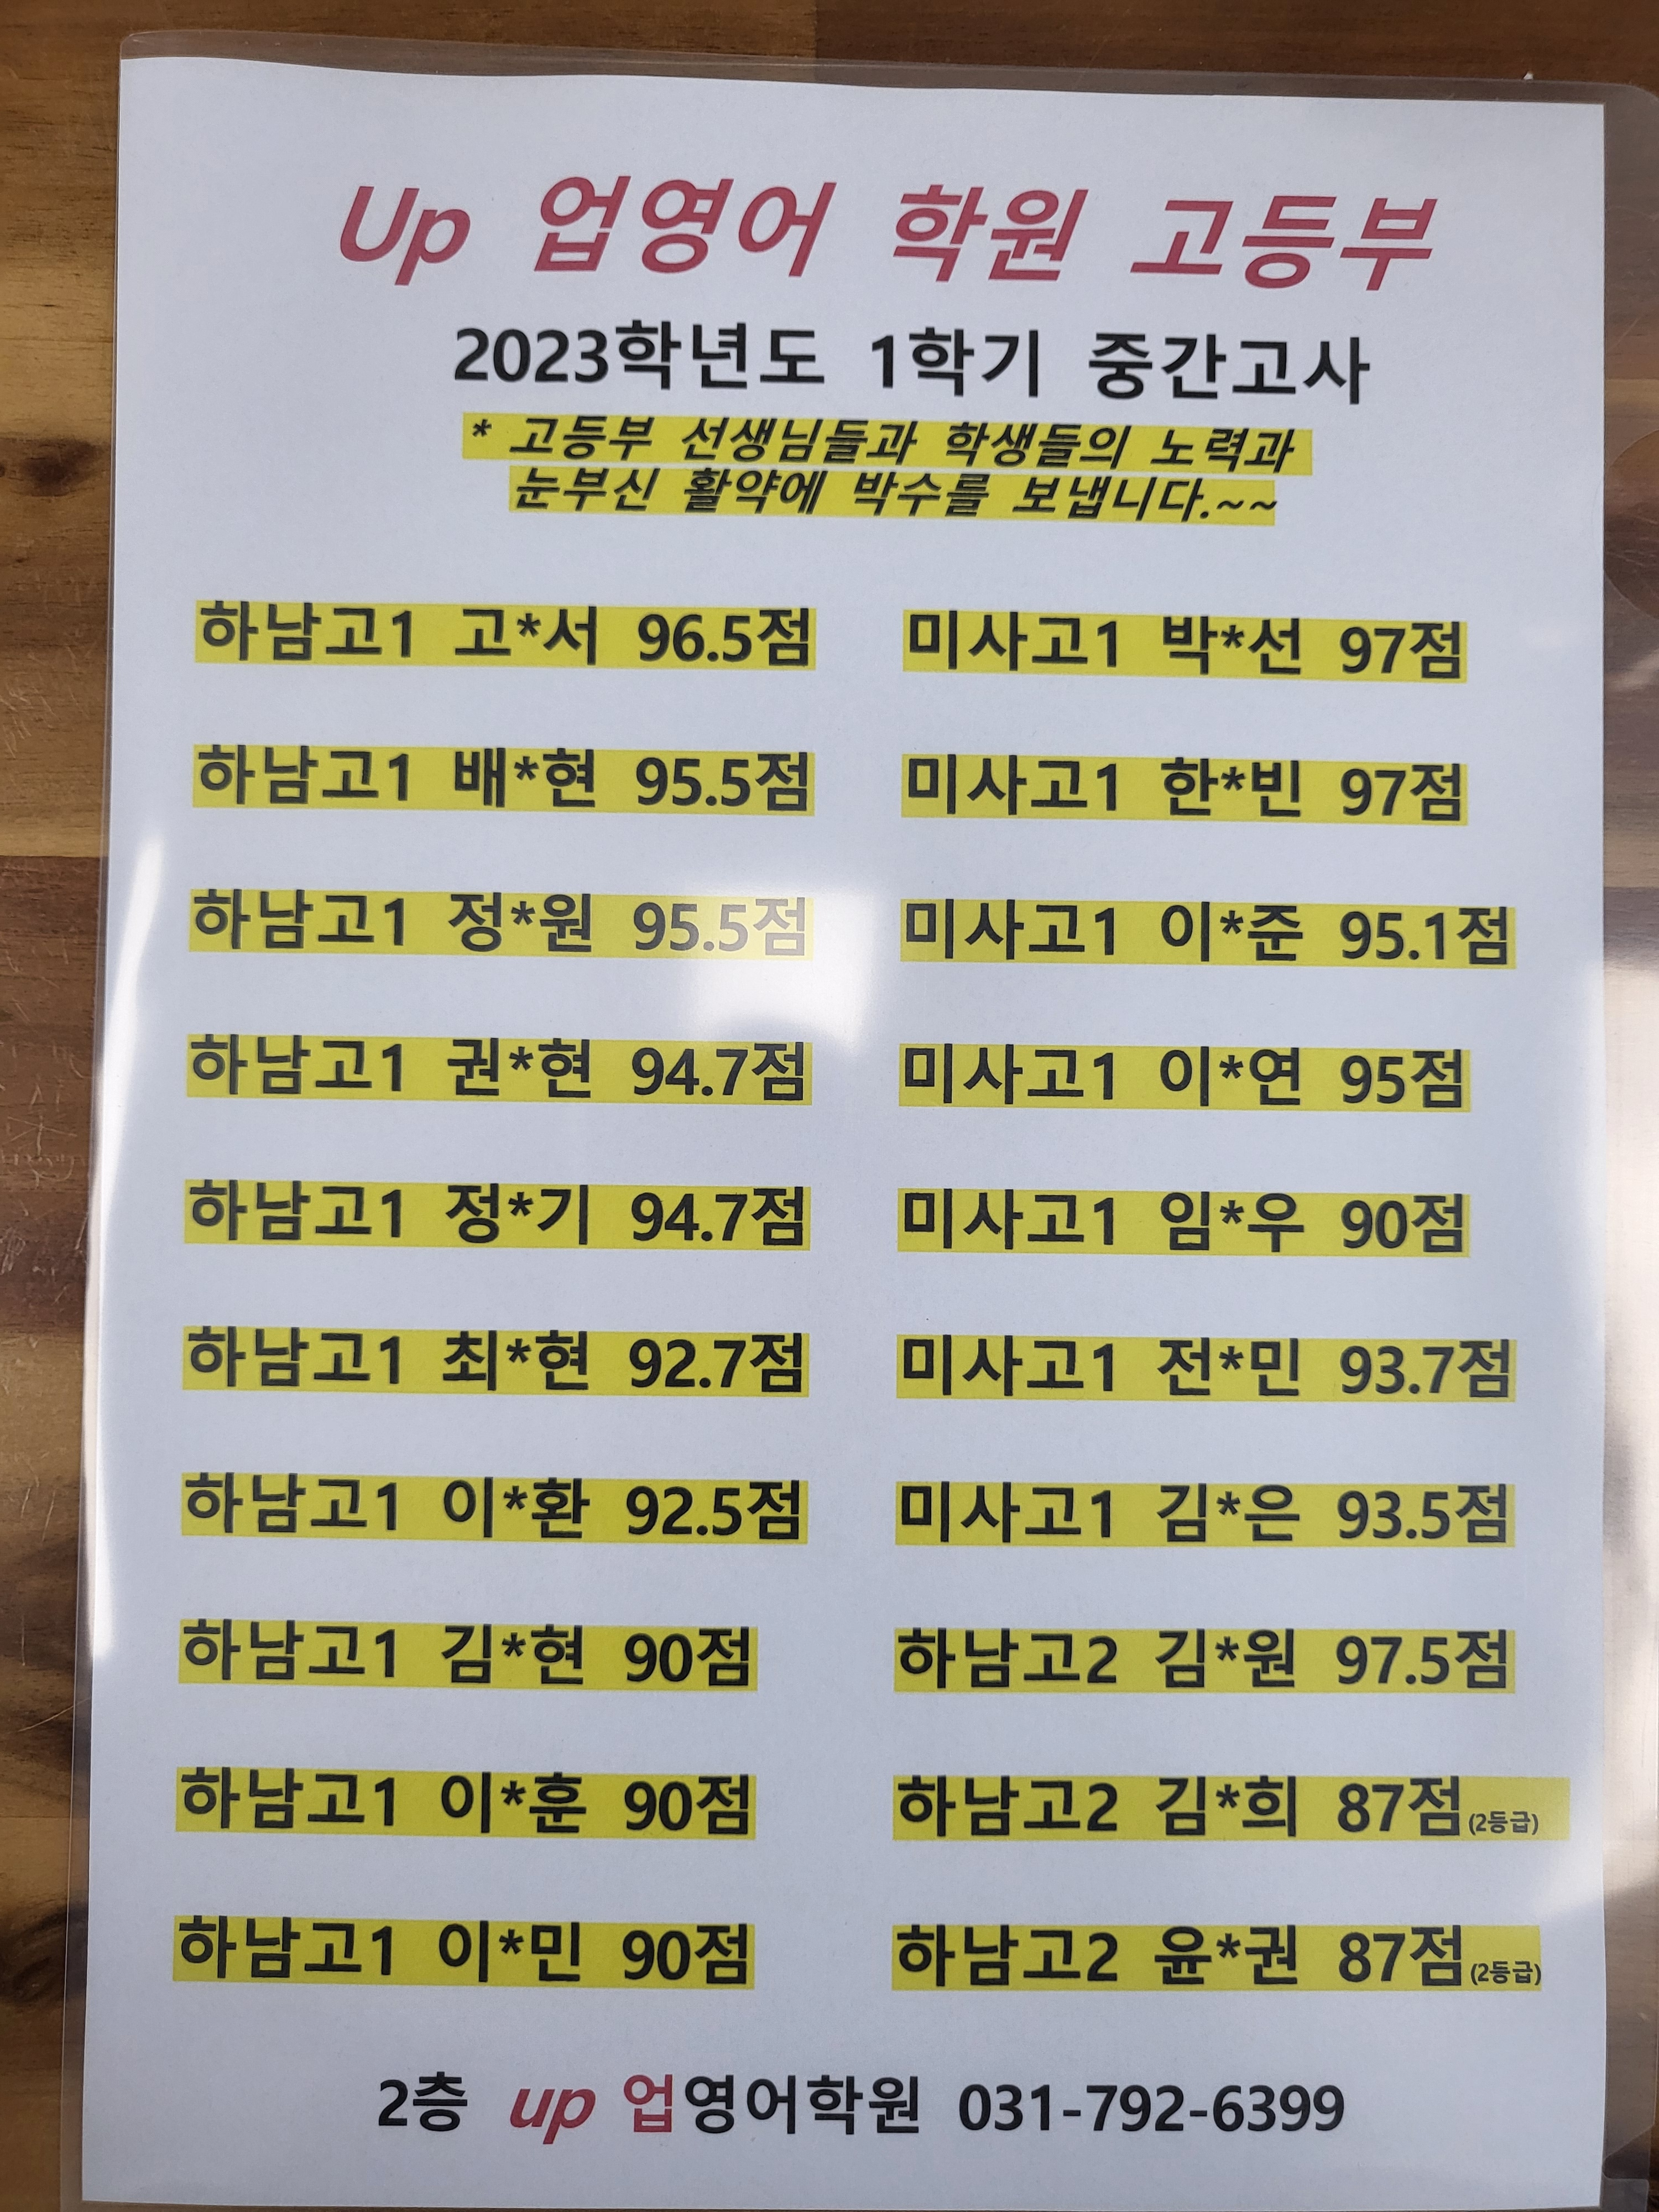 Up 업영어 학원 고등부
2023학년도 1학기 중간고사
* 고등부 선생님들과 학생들의 노력과
눈부신 활약에 박수를 보냅니다.~~
하남고1 고*서 96.5점 미사고1 박*선 97점
하남고1 배*현 95.5점 미사고1 한*빈 97점
하남고1 정*원 95.5점 미사고1 이*준 95.1점
하남고1 권*현 94.7점 미사고1 이*연 95점
하남고1 정*기 94.7점 미사고1 임*우 90점
하남고1 최*현 92.7점 미사고1 전*민 93.7점
하남고1 이*환 92.5점 미사고1 김*은 93.5점
하남고1 김*현 90점 하남고2 김*원 97.5점
하남고1 이*훈 90점 하남고2 김*희 87점(2등급)
하남고1 이*민 90점 하남고2 윤*권 87점(2등급)
2층 up 업영어학원 031-792-6399